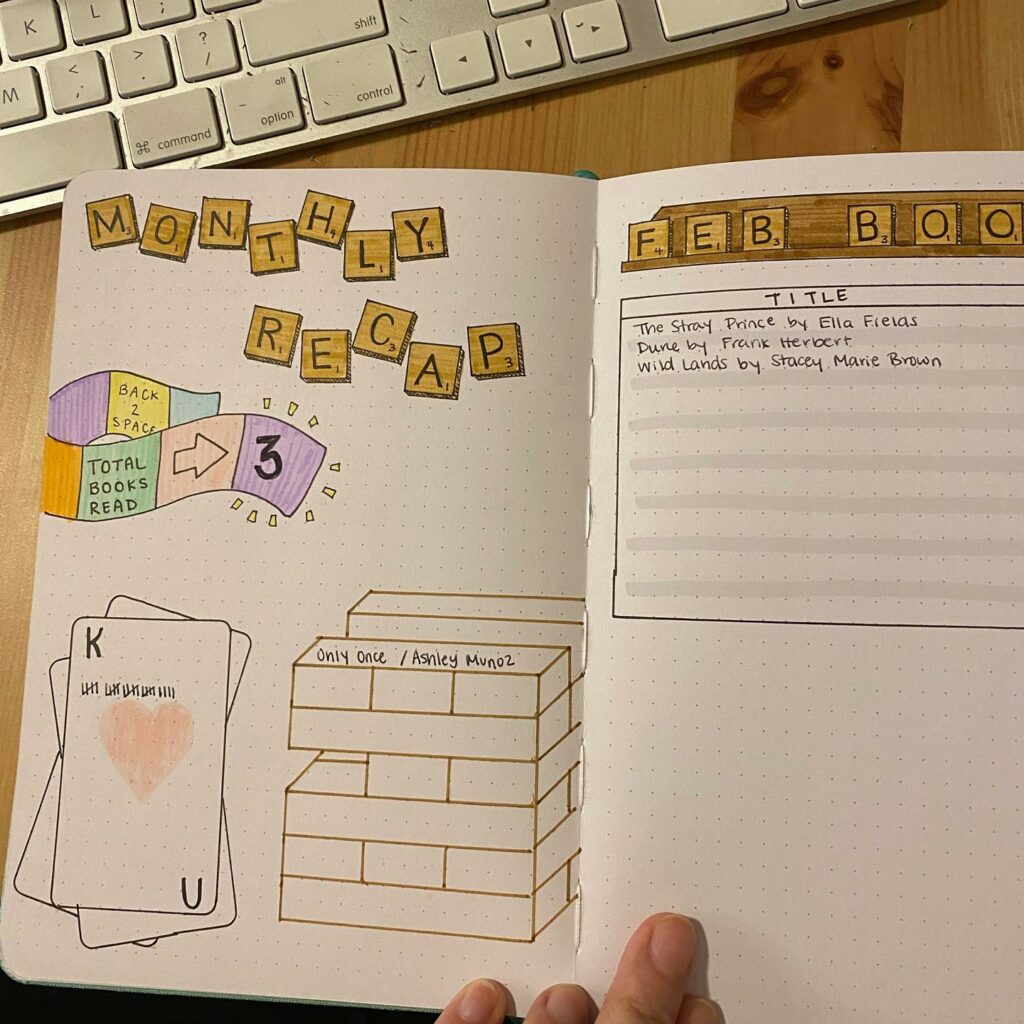 K L : ; shift
M < , > . ? / alt
⌘ command option control
MONTHLY
RECAP
BACK
2
SPACE
TOTAL
BOOKS
READ
3
K
U
Only Once / Ashley Munoz
FEB BOO
TITLE
The Stray Prince by Ella Fields
Dune by Frank Herbert
Wild Lands by Stacey Marie Brown